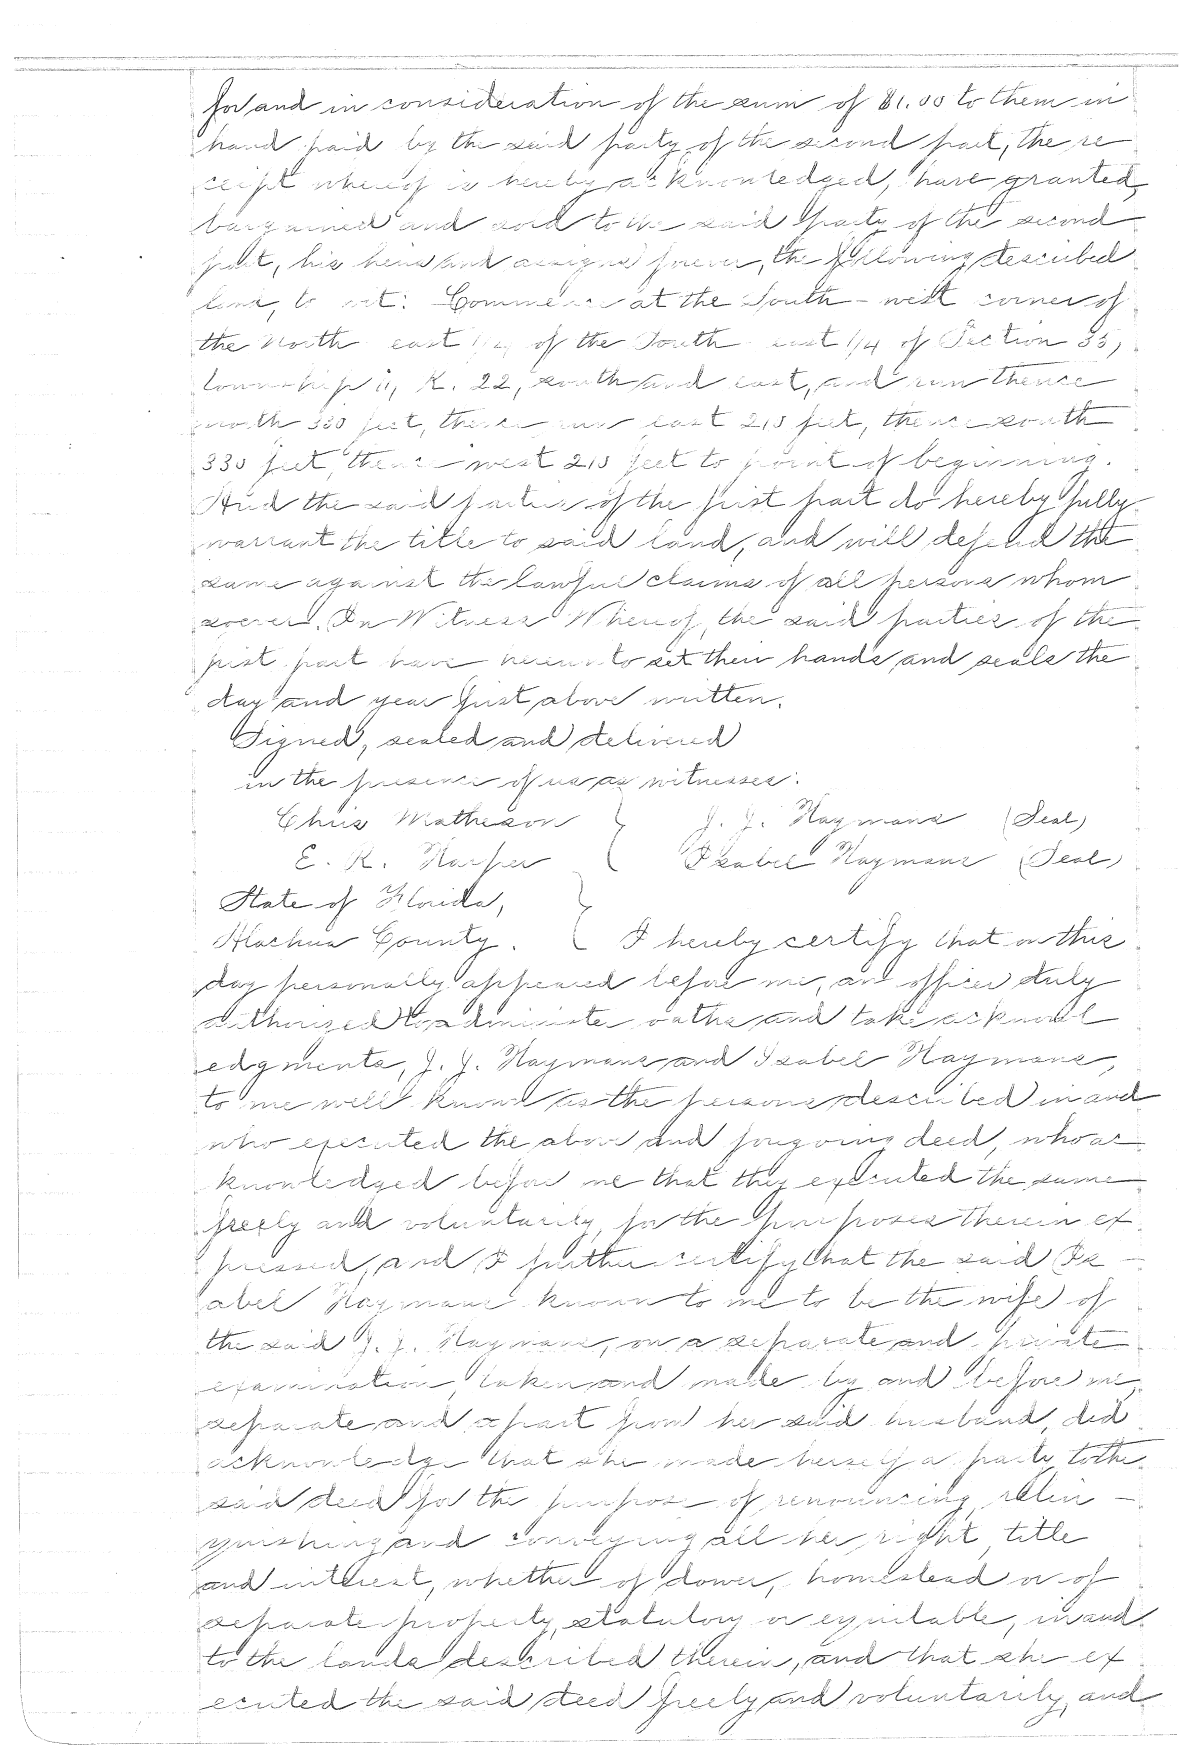 for and in consideration of the sum of $1.00 to them in
hand paid by the said party of the second part, the re
ceipt whereof is hereby acknowledged, have granted,
bargained and sold to the said party of the second
part, his heirs and assigns forever, the following described
land, to wit: Commence at the South-west corner of
the North east 1/4 of the South east 1/4 of Section 35,
township 11, R. 22, south and east, and run thence
north 330 feet, thence run east 210 feet, thence south
330 feet, thence west 210 feet to point of beginning.
And the said parties of the first part do hereby fully
warrant the title to said land, and will defend the
same against the lawful claims of all persons whom
soever. In Witness Whereof, the said parties of the
first part have hereunto set their hands and seals the
day and year first above written.
Signed, sealed and delivered
in the presence of us as witnesses:
Chris Matheson } J. J. Haymans (Seal)
E. R. Harper Isabel Haymans (Seal)
State of Florida, }
Alachua County. I hereby certify that on this
day personally appeared before me, an officer duly
authorized to administer oaths and take acknowl
edgments, J. J. Haymans and Isabel Haymans,
to me well known as the persons described in and
who executed the above and forgoing deed, who ac
knowledged before me that they executed the same
freely and voluntarily, for the purposes therein ex
pressed, and I further certify that the said Is-
abel Haymans known to me to be the wife of
the said J. J. Haymans, on a separate and private
examination, taken and made by and before me,
separate and apart from her said husband, did
acknowledge that she made herself a party to the
said deed for the purpose of renouncing, relin-
quishing and conveying all her right, title
and interest, whether of dower, homestead or of
separate property, statutory or equitable, in and
to the lands described therein, and that she ex
ecuted the said deed freely and voluntarily, and